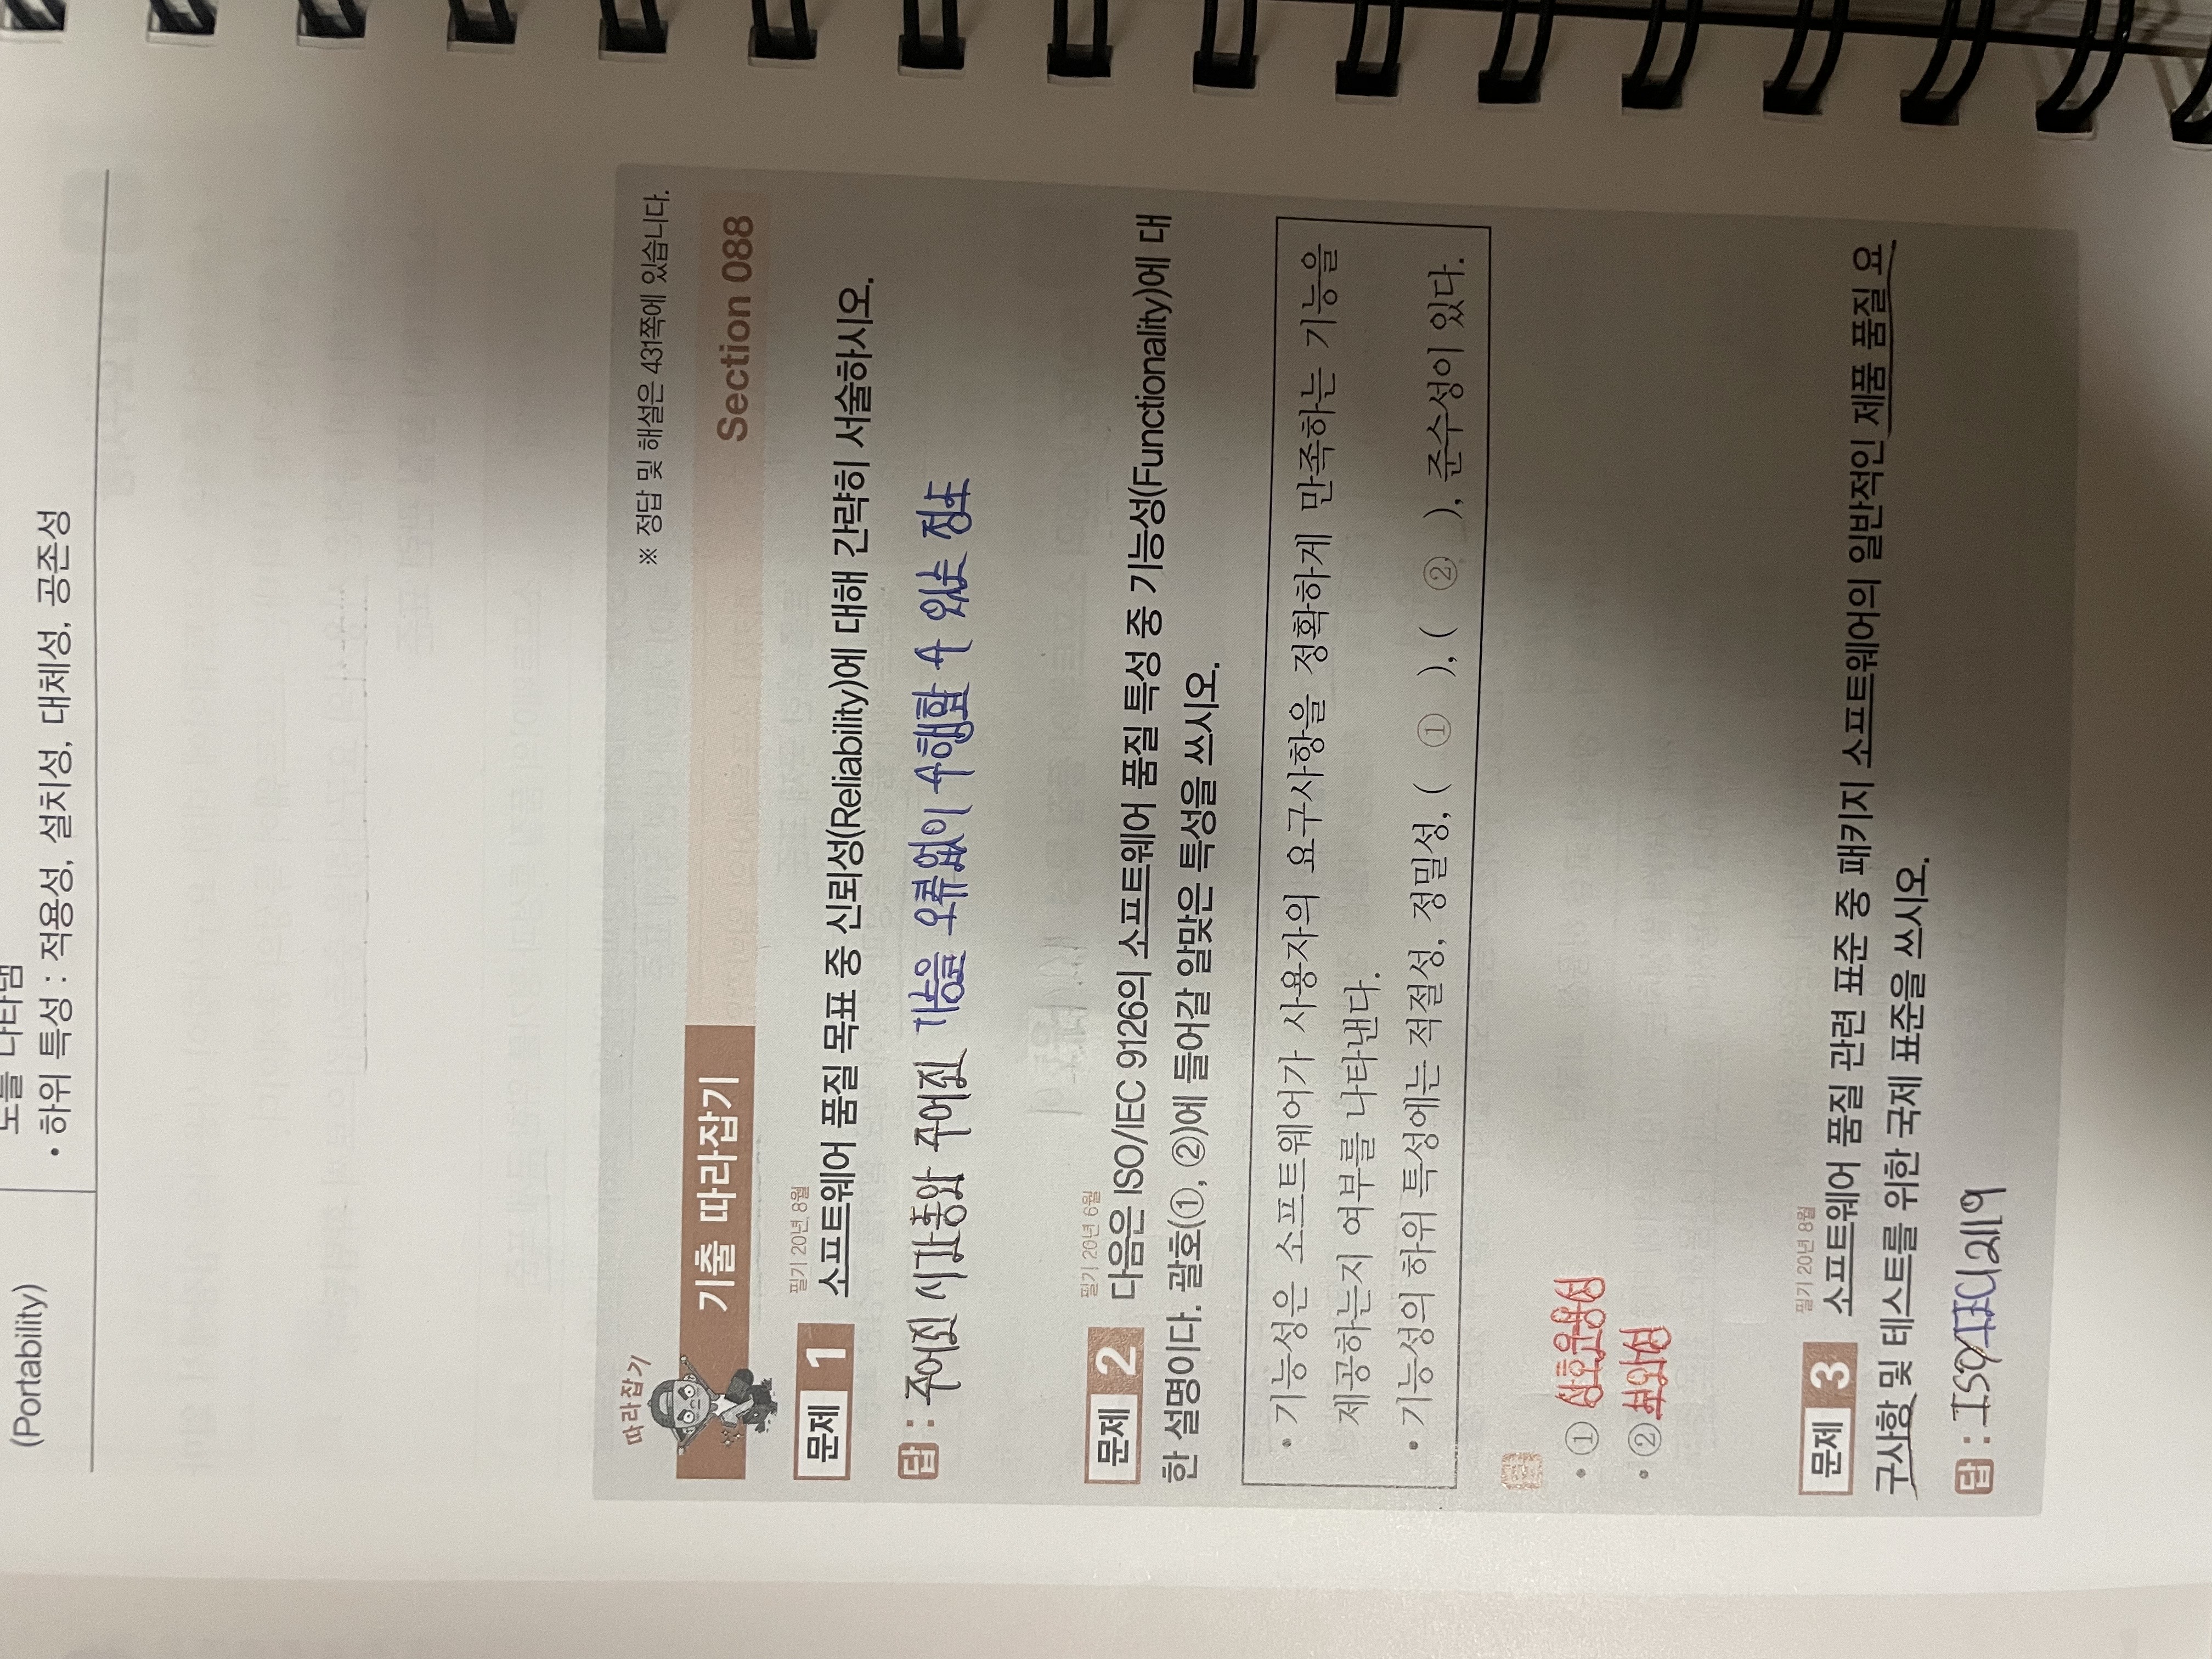 (Portability)
도를 나타냄
• 하위 특성 : 적용성, 설치성, 대체성, 공존성
따라잡기
※ 정답 및 해설은 431쪽에 있습니다.
기출 따라잡기
Section 088
필기 20년 8월
문제 1 소프트웨어 품질 목표 중 신뢰성(Reliability)에 대해 간략히 서술하시오.
답 : 주어진 시간동안 주어진 기능을 오류없이 수행할 수 있는 정도
필기 20년 6월
문제 2 다음은 ISO/IEC 9126의 소프트웨어 품질 특성 중 기능성(Functionality)에 대
한 설명이다. 괄호(①, ②)에 들어갈 알맞은 특성을 쓰시오.
• 기능성은 소프트웨어가 사용자의 요구사항을 정확하게 만족하는 기능을
제공하는지 여부를 나타낸다.
• 기능성의 하위 특성에는 적절성, 정밀성, ( ① ), ( ② ), 준수성이 있다.
답
• ① 상호운용성
• ② 보안성
필기 20년 8월
문제 3 소프트웨어 품질 관련 표준 중 패키지 소프트웨어의 일반적인 제품 품질 요
구사항 및 테스트를 위한 국제 표준을 쓰시오.
답 : ISO/IEC12119